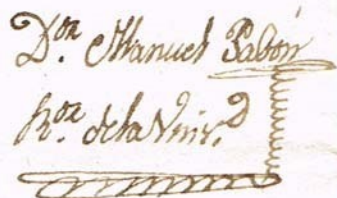 D.ᵒʳ Manuel Pabón
R.ᵒʳ de la Univ.ᵈ